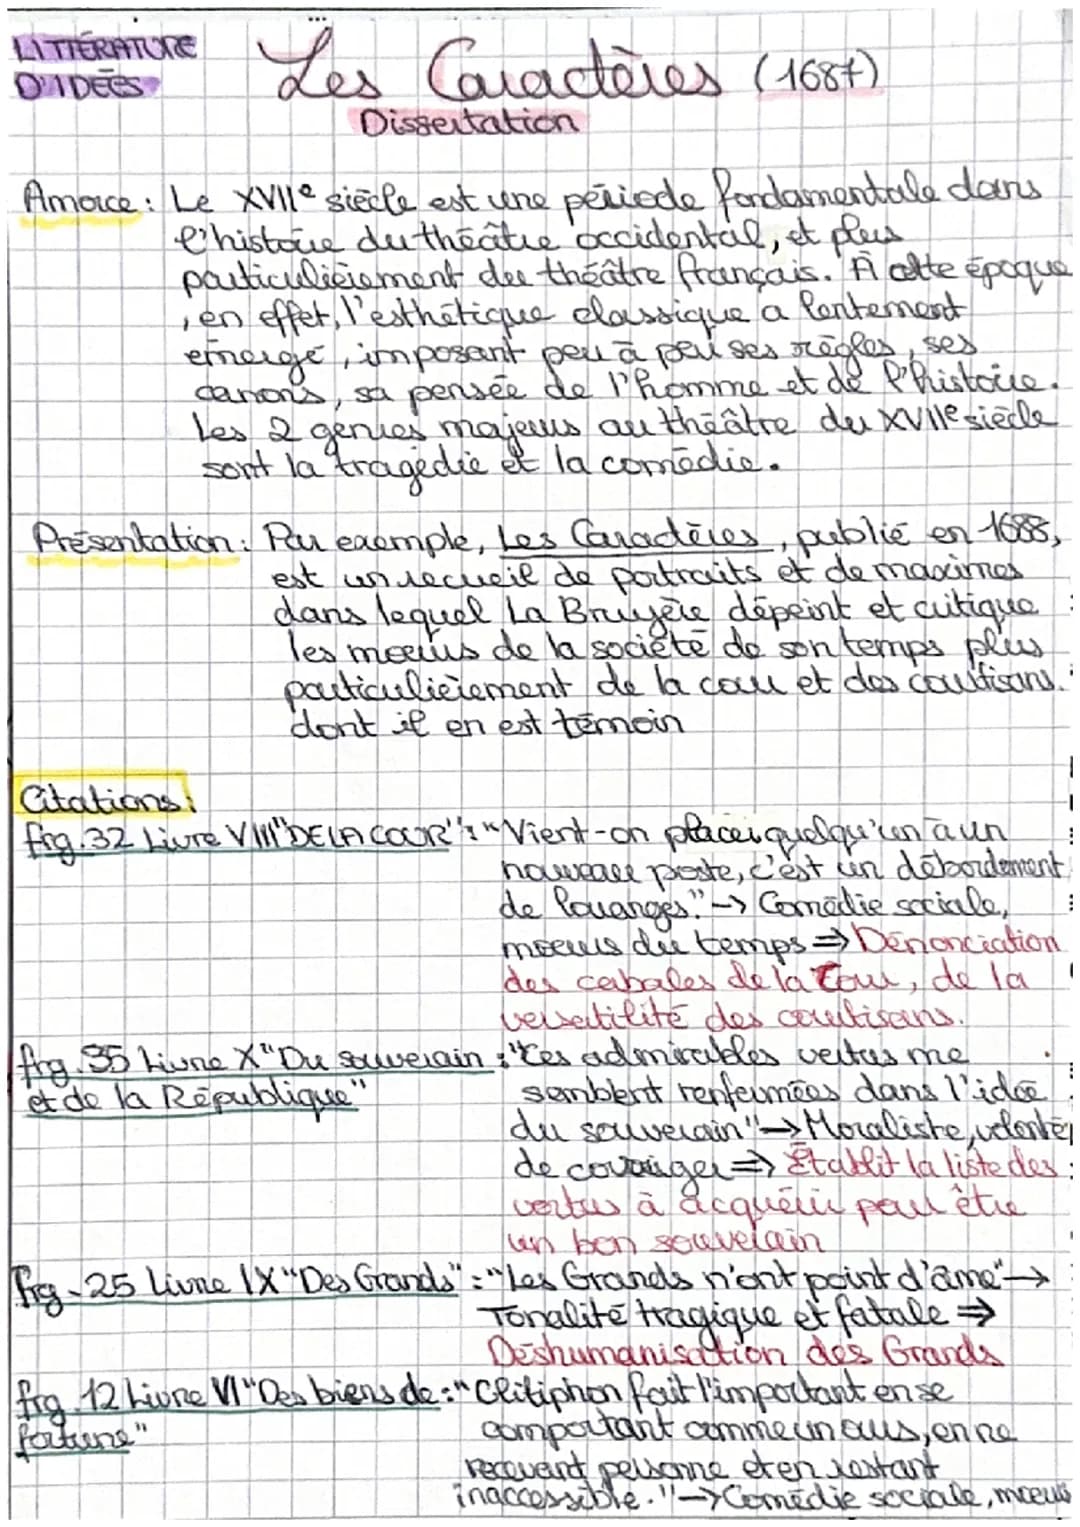 LITTÉRATURE
D'IDÉES
Les Caractères (1687)
Dissertation
Amorce : Le XVIIe siècle est une période fondamentale dans
l'histoire du théâtre occidental, et plus
particulièrement du théâtre français. À cette époque
, en effet, l'esthétique classique a lentement
émergé, imposant peu à peu ses règles, ses
canons, sa pensée de l'homme et de l'histoire.
Les 2 genres majeurs au théâtre du XVIIe siècle
sont la tragédie et la comédie.
Présentation : Par exemple, Les Caractères, publié en 1688,
est un recueil de portraits et de maximes
dans lequel La Bruyère dépeint et critique
les mœurs de la société de son temps plus
particulièrement de la cour et des courtisans.
dont il en est témoin
Citations :
frg. 32 Livre VIII "DE LA COUR" : "Vient-on placer quelqu'un à un
nouveau poste, c'est un débordement
de louanges." → Comédie sociale,
mœurs du temps ⇒ Dénonciation
des cabales de la Cour, de la
versatilité des courtisans.
frg. 35 Livre X "Du souverain : "Ces admirables vertus me
et de la République"
semblent renfermées dans l'idée
du souverain" → Moraliste, volonté
de corriger ⇒ Établit la liste des
vertus à acquérir pour être
un bon souverain
frg. 25 Livre IX "Des Grands" : "Les Grands n'ont point d'âme" →
Tonalité tragique et fatale ⇒
Déshumanisation des Grands
frg. 12 Livre VI "Des biens de : "Clitiphon fait l'important en se
fortune"
comportant comme un ours, en ne
recevant personne et en restant
inaccessible." → Comédie sociale, mœurs